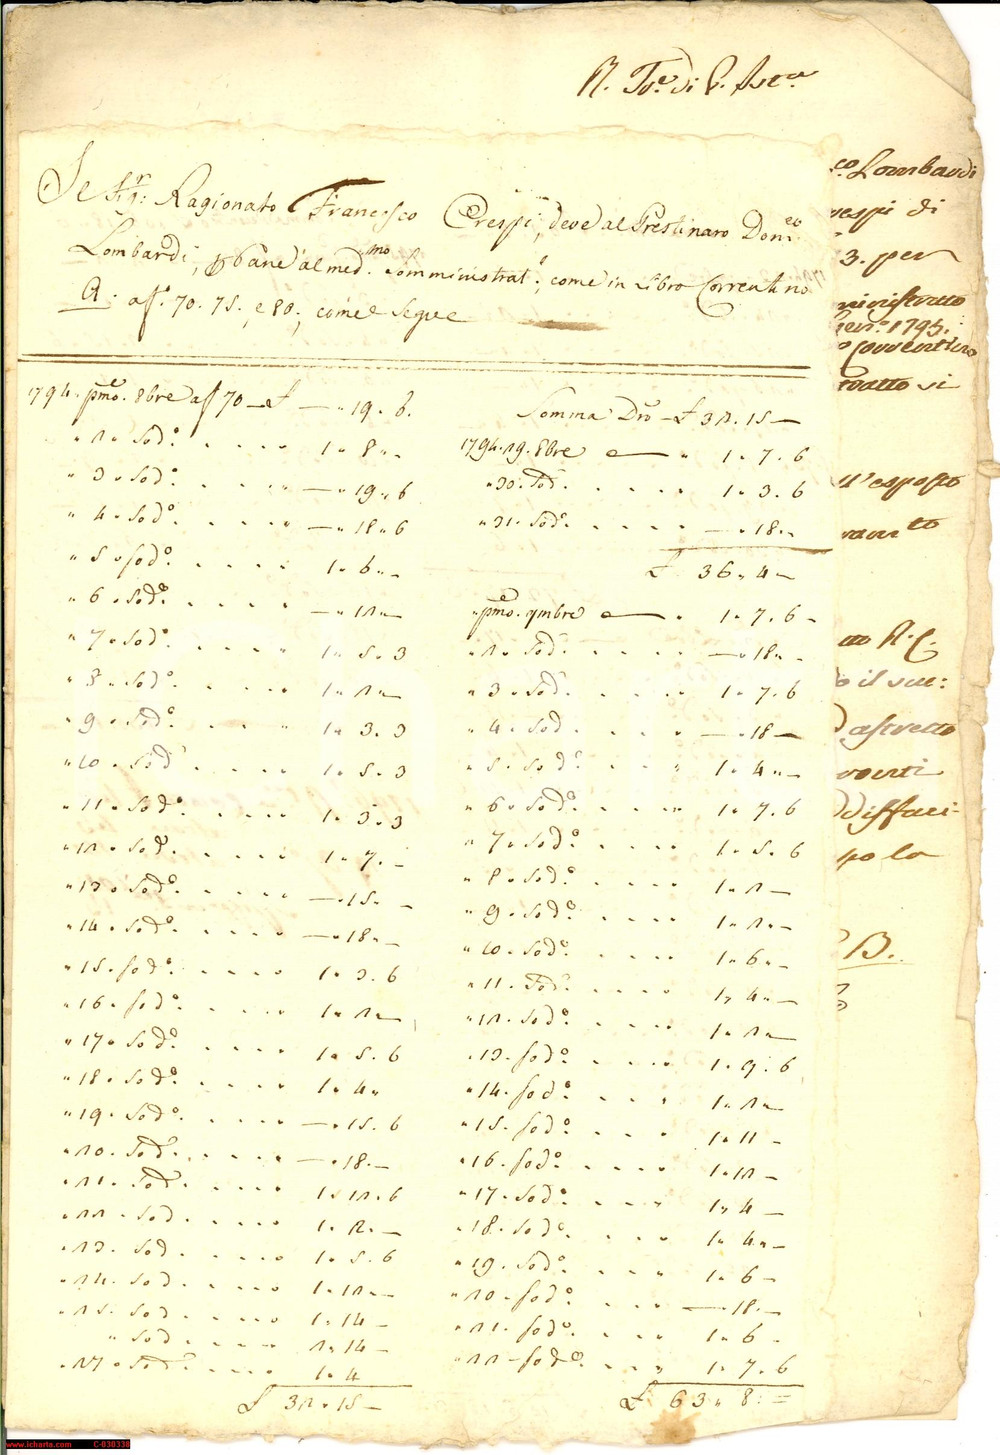 Il Sig.r Ragionato Francesco Crespi, deve al Prestinaro Dom.co
Lombardi, p pane al med.mo somministrat.o, come in Libro Correntino
A. a f.o 70. 75. e 80., come segue
1794. pmo. 8bre a f 70 — £ — „ 19. 6.
„ 2 „ sod.o . . . . 1 „ 8 „ -
„ 3 „ sod.o . . . . — „ 19 „ 6
„ 4 „ sod.o . . . . — „ 18 „ 6
„ 5 „ sod.o . . . . 1 „ 6 „ -
„ 6 „ sod.o . . . . — „ 12 „ —
„ 7 „ sod.o . . . . 1 „ 5 „ 3
„ 8 „ sod.o . . . . 1 „ 2 „ —
„ 9 „ sod.o . . . . 1 „ 3 . 3
„ 10 „ sod.o . . . . 1 „ 5 . 3
„ 11 „ sod.o . . . . 1 „ 3 „ 3
„ 12 „ sod. . . . . 1 „ 7 . -
„ 13 „ sod.o . . . . — „ 15 „ -
„ 14 „ sod.o . . . . — „ 18 „ -
„ 15 „ sod.o . . . . 1 „ 3 . 6
„ 16 „ sod.o . . . . 1 „ 2 „ —
„ 17 „ sod.o . . . . 1 „ 5 . 6
„ 18 „ sod.o . . . . 1 „ 4 „
„ 19 „ sod.o . . . . — „ 15 . 6
„ 20 „ sod.o . . . . — „ 18 „ —
„ 21 „ sod. . . . . 1 „ 12 „ 6
„ 22 „ sod. . . . . 1 „ 2 „ —
„ 23 . sod. . . . . 1 „ 5 . 6
„ 24 . sod. . . . . 1 „ 12 „ —
„ 25 . sod. . . . . 1 „ 14 —
„ sod. . . . . 2 „ 14 —
„ 27 „ sod.o . . . . 1 „ 4
£ 32 „ 15 —
Somma Dro £ 32 . 15 —
1794. 29. 8bre — „ 1 „ 7 . 6
„ 30 „ sod.o . . . . 1 „ 3 . 6
„ 31 „ sod.o . . . . — „ 18 „ -
£ 36 „ 4 —
„ pmo. 9mbre — „ 1 „ 7 . 6 -
„ 2 „ sod.o . . . . — „ 18 „ -
„ 3 „ sod.o . . . . 1 „ 7 . 6
„ 4 „ sod. . . . . — „ 18 —
„ 5 „ sod.o . . . . 1 „ 4 „ —
„ 6 „ sod.o . . . . 1 „ 7 . 6
„ 7 „ sod.o . . . . 1 „ 5 „ 6
„ 8 „ sod.o . . . . 1 „ 2 —
„ 9 „ sod.o . . . . 1 „ 2 „ —
„ 10 „ sod.o . . . . 1 „ 6 „ —
„ 11 . sod.o . . . . 1 „ 4 „ —
„ 12 . sod.o . . . . 1 „ 2 „ —
„ 13 . sod.o . . . . 1 „ 9 . 6
„ 14 . sod.o . . . 1 „ 2 „ —
„ 15 . sod.o . . . 1 „ 11 -
„ 16 . sod.o . . . . 1 „ 12 —
„ 17 . sod.o . . . . 1 „ 4 —
„ 18 . sod.o . . . . 1 „ 4 „ —
„ 19 . sod.o . . . 1 „ 6 —
„ 20 . sod.o . . . — 18 „ —
„ 21 . sod.o . . . 1 „ 6 -
„ 22 . sod.o . . „ 1 „ 7 . 6
£ 63 „ 8 : =
co Lombardi
respi di
3. per
ministratto
Gen.o 1795.
o Correntino
tratto si
ll'esposto
to
A. C.
o il sud:
d astretto
verti
ddisfaci-
po la
B.
www.icharta.com C-030338